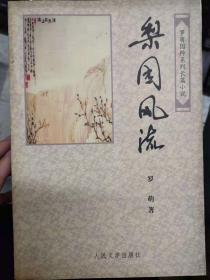 罗萌国粹系列长篇小说
梨园风流
罗萌著
人民文学出版社